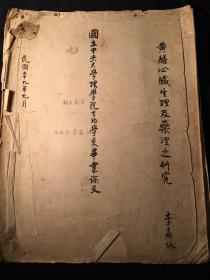 黄鱔心臟生理及藥理之研究
李嘉泳
國立中央大學理學院生物學系畢業論文
民國廿九年九月